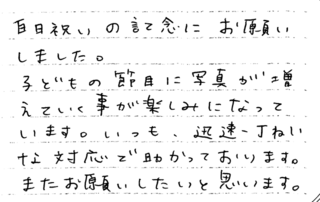 百日祝いの記念にお願い
しました。
子どもの節目に写真が増
えていく事が楽しみになって
います。いつも、迅速丁ねい
な対応で助かっております。
またお願いしたいと思います。